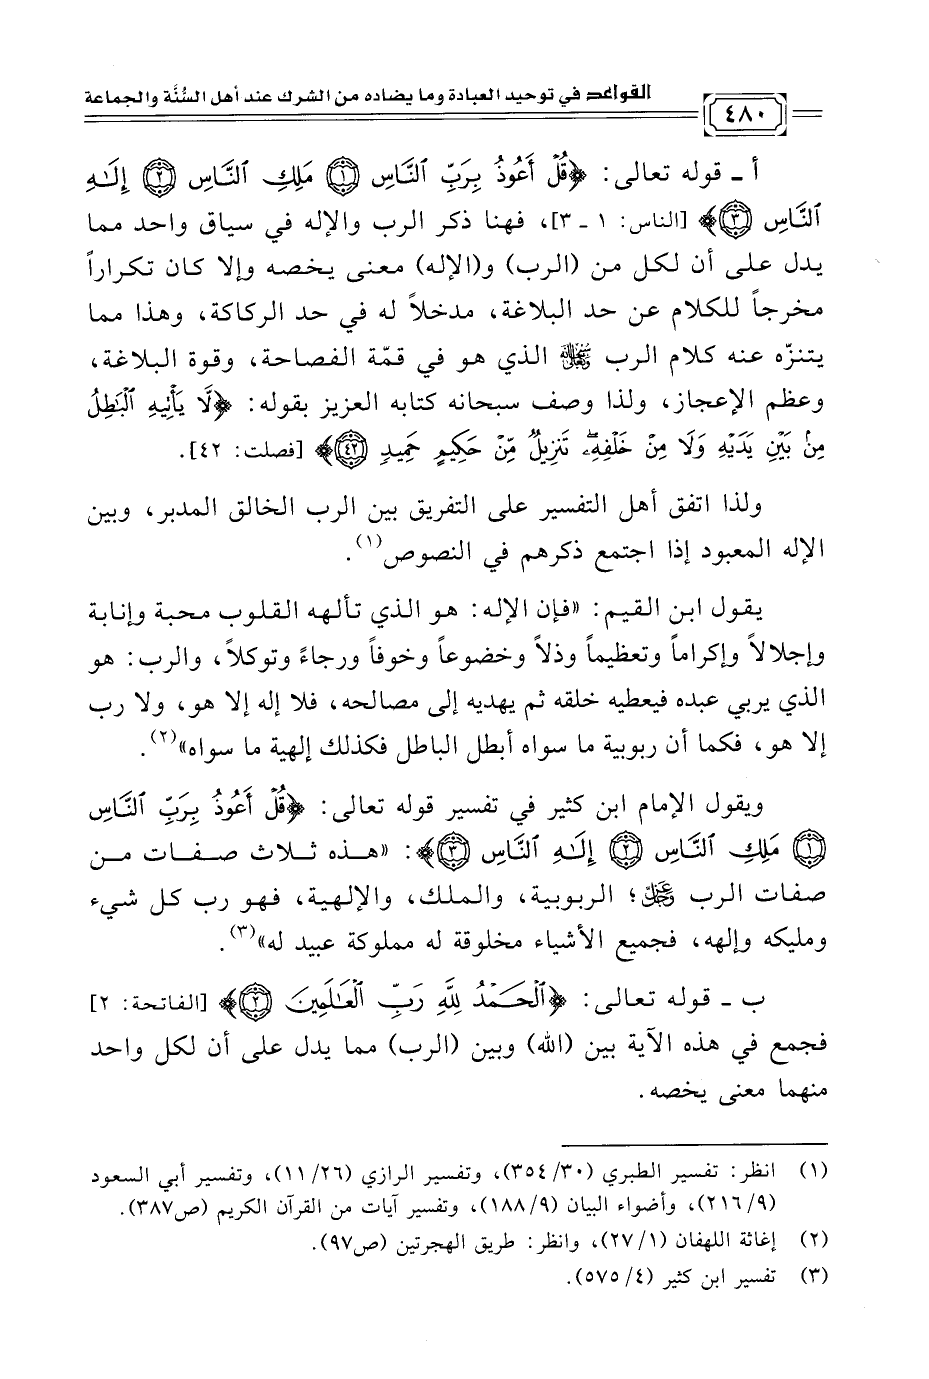 القواعد في توحيد العبادة وما يضاده من الشرك عند أهل السُّنَّة والجماعة
٤٨٠
أ ـ قوله تعالى: ﴿قُلْ أَعُوذُ بِرَبِّ ٱلنَّاسِ ۝١ مَلِكِ ٱلنَّاسِ ۝٢ إِلَٰهِ
ٱلنَّاسِ ۝٣﴾ [الناس: ١ ـ ٣]، فهنا ذكر الرب والإله في سياق واحد مما
يدل على أن لكل من (الرب) و(الإله) معنى يخصه وإلا كان تكراراً
مخرجاً للكلام عن حد البلاغة، مدخلاً له في حد الركاكة، وهذا مما
يتنزّه عنه كلام الرب ﷻ الذي هو في قمّة الفصاحة، وقوة البلاغة،
وعظم الإعجاز، ولذا وصف سبحانه كتابه العزيز بقوله: ﴿لَّا يَأْتِيهِ ٱلْبَٰطِلُ
مِنۢ بَيْنِ يَدَيْهِ وَلَا مِنْ خَلْفِهِۦ تَنزِيلٌ مِّنْ حَكِيمٍ حَمِيدٍ ۝٤٢﴾ [فصلت: ٤٢].
ولذا اتفق أهل التفسير على التفريق بين الرب الخالق المدبر، وبين
الإله المعبود إذا اجتمع ذكرهم في النصوص(١).
يقول ابن القيم: «فإن الإله: هو الذي تألهه القلوب محبة وإنابة
وإجلالاً وإكراماً وتعظيماً وذلاً وخضوعاً وخوفاً ورجاءً وتوكلاً، والرب: هو
الذي يربي عبده فيعطيه خلقه ثم يهديه إلى مصالحه، فلا إله إلا هو، ولا رب
إلا هو، فكما أن ربوبية ما سواه أبطل الباطل فكذلك إلهية ما سواه»(٢).
ويقول الإمام ابن كثير في تفسير قوله تعالى: ﴿قُلْ أَعُوذُ بِرَبِّ ٱلنَّاسِ
۝١ مَلِكِ ٱلنَّاسِ ۝٢ إِلَٰهِ ٱلنَّاسِ ۝٣﴾: «هذه ثلاث صفات من
صفات الرب ﷿؛ الربوبية، والملك، والإلهية، فهو رب كل شيء
ومليكه وإلهه، فجميع الأشياء مخلوقة له مملوكة عبيد له»(٣).
ب ـ قوله تعالى: ﴿ٱلْحَمْدُ لِلَّهِ رَبِّ ٱلْعَٰلَمِينَ ۝٢﴾ [الفاتحة: ٢]
فجمع في هذه الآية بين (الله) وبين (الرب) مما يدل على أن لكل واحد
منهما معنى يخصه.
(١) انظر: تفسير الطبري (٣٥٤/٣٠)، وتفسير الرازي (١١/٢٦)، وتفسير أبي السعود
(٢١٦/٩)، وأضواء البيان (١٨٨/٩)، وتفسير آيات من القرآن الكريم (ص٣٨٧).
(٢) إغاثة اللهفان (٢٧/١)، وانظر: طريق الهجرتين (ص٩٧).
(٣) تفسير ابن كثير (٥٧٥/٤).